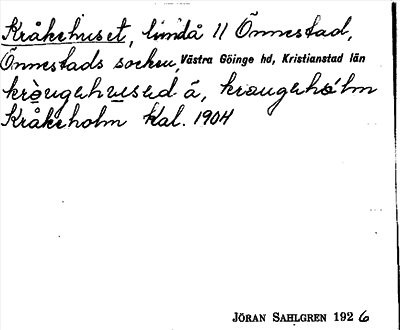 Kråkehuset, lundå 11 Önnestad,
Önnestads socken, Västra Göinge hd, Kristianstad län
krò̤ugəhu̱səd á, kraugəhál̀m
Kråkeholm Kal. 1904
JÖRAN SAHLGREN 1926